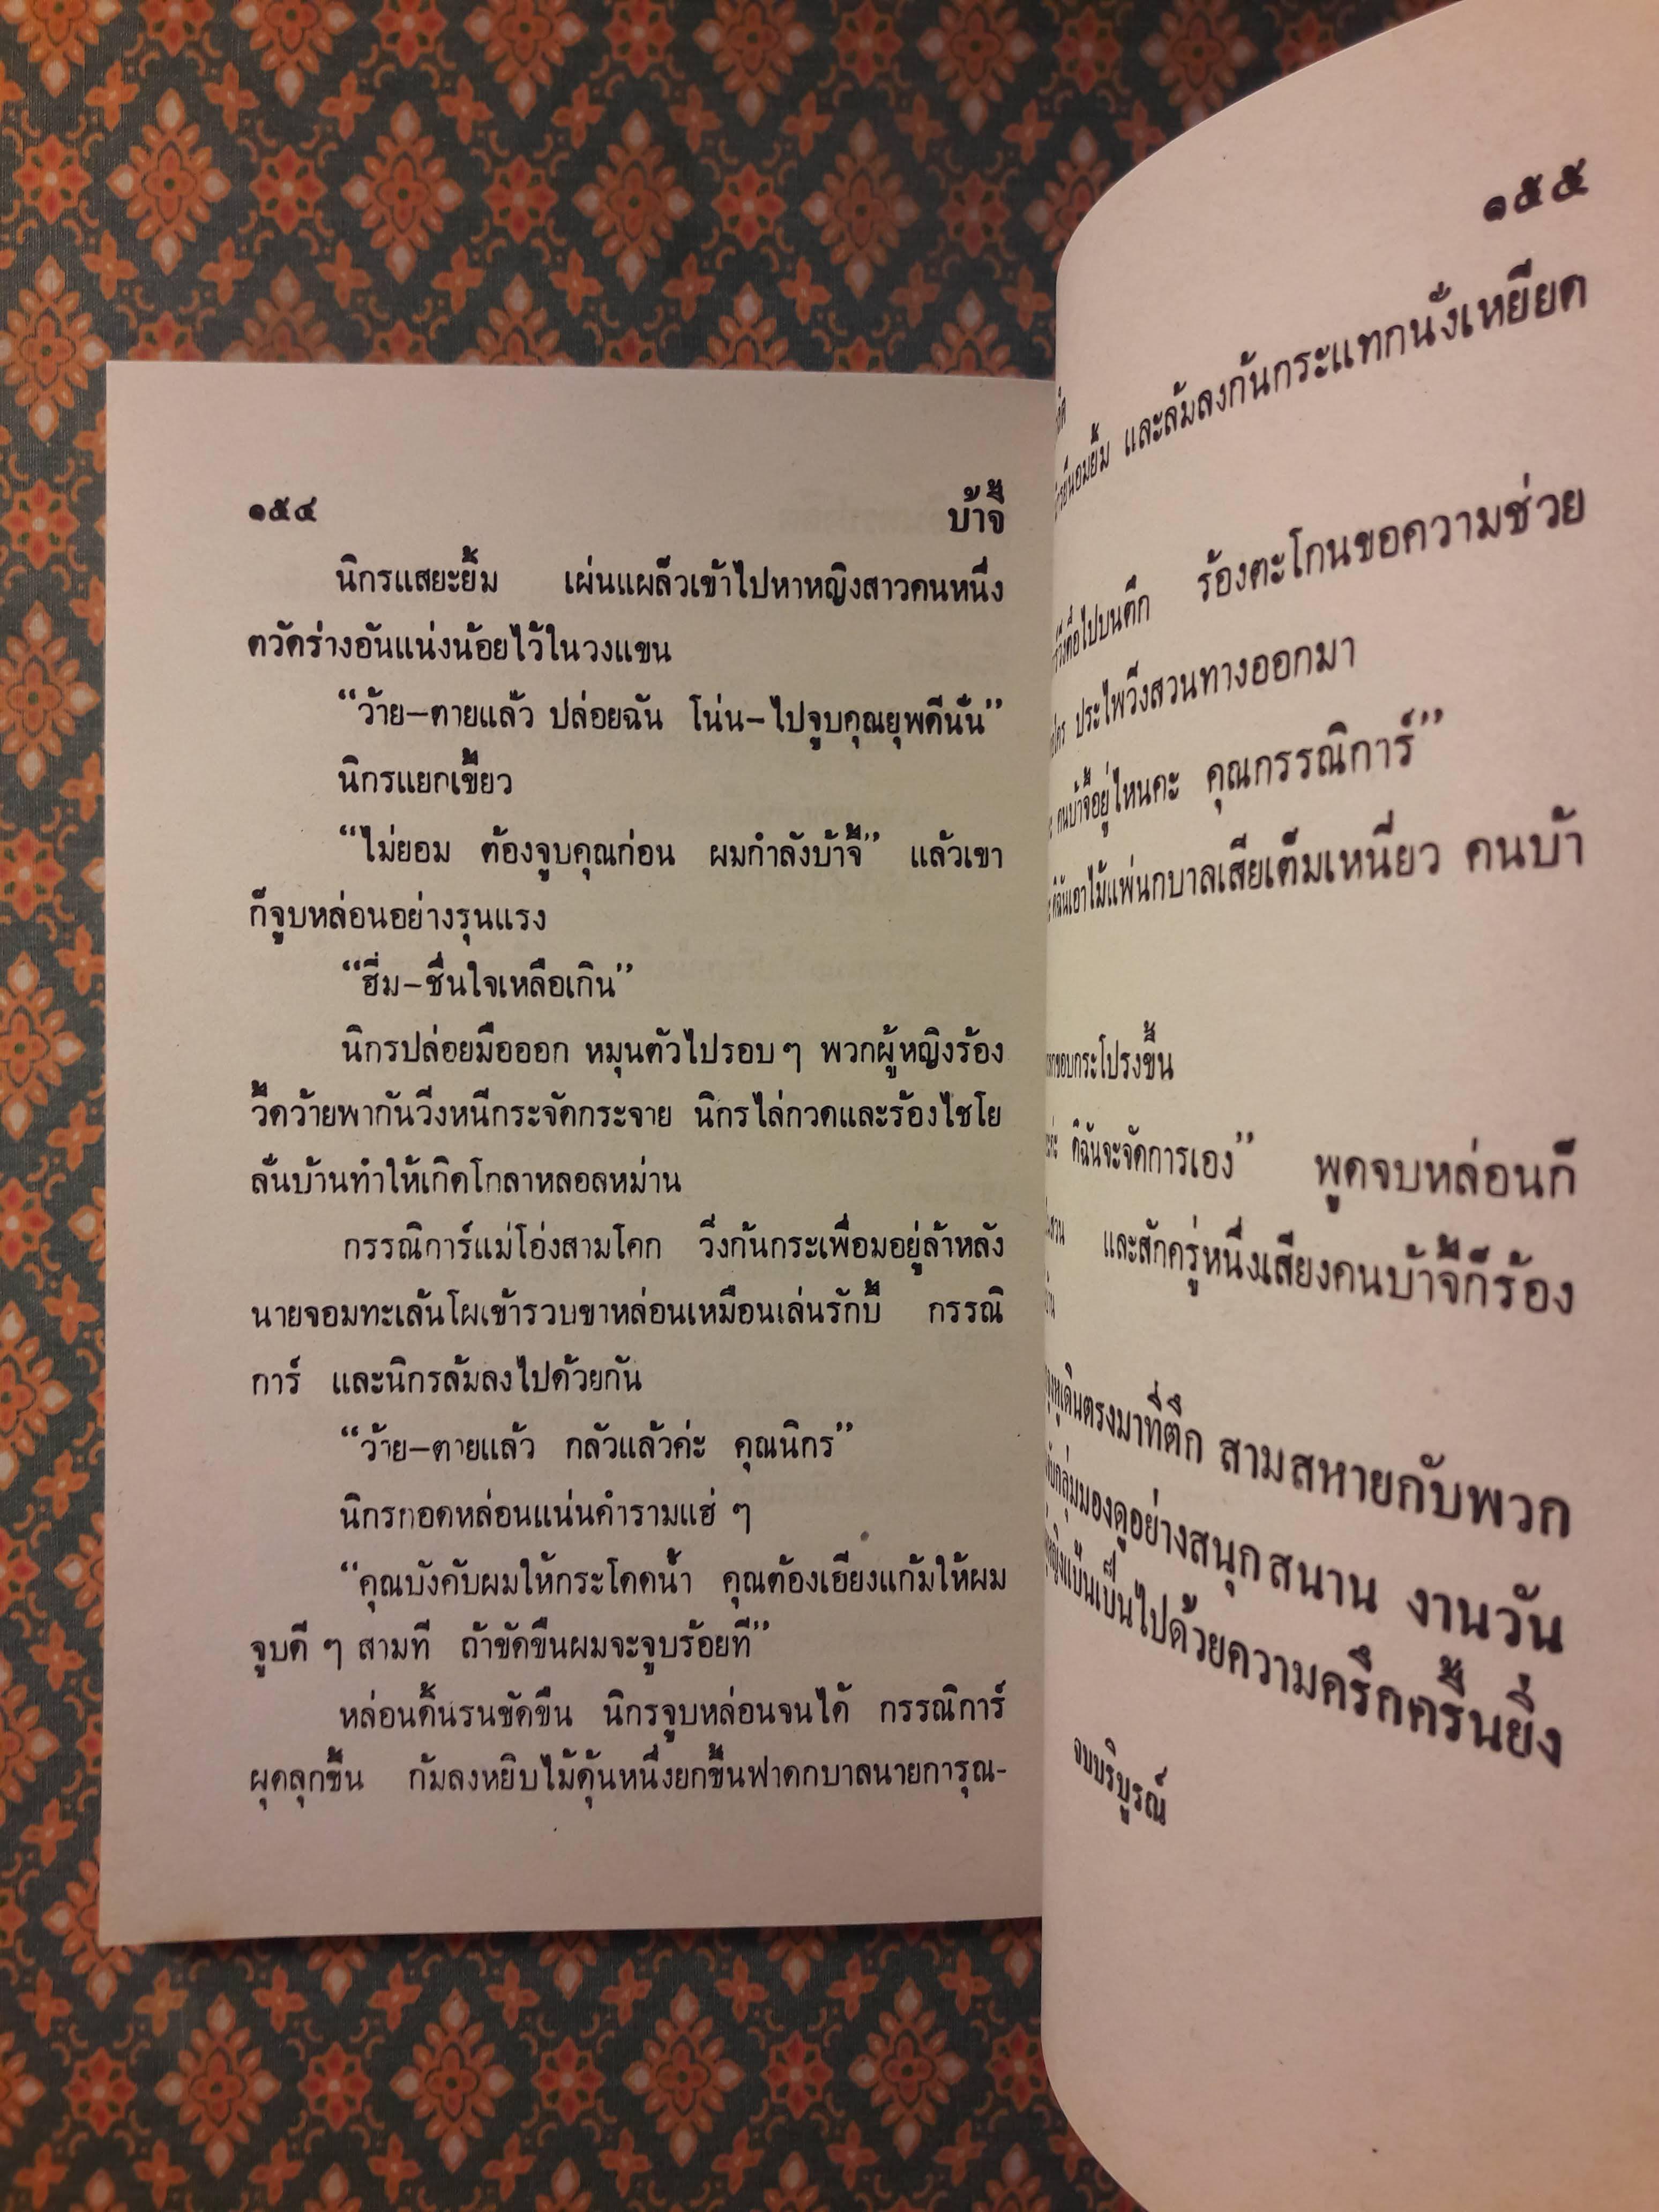 ๑๕๔ บ้าจี้
นิกรแสยะยิ้ม เผ่นแผล็วเข้าไปหาหญิงสาวคนหนึ่ง
ตวัดร่างอันแน่งน้อยไว้ในวงแขน
“ว้าย–ตายแล้ว ปล่อยฉัน โน่น–ไปจูบคุณยุพดีนั่น”
นิกรแยกเขี้ยว
“ไม่ยอม ต้องจูบคุณก่อน ผมกำลังบ้าจี้” แล้วเขา
ก็จูบหล่อนอย่างรุนแรง
“ฮื่ม–ชื่นใจเหลือเกิน”
นิกรปล่อยมือออก หมุนตัวไปรอบๆ พวกผู้หญิงร้อง
วี๊ดว้ายพากันวิ่งหนีกระจัดกระจาย นิกรไล่กวดและร้องไชโย
ลั่นบ้านทำให้เกิดโกลาหลอลหม่าน
กรรณิการ์แม่โอ่งสามโคก วิ่งก้นกระเพื่อมอยู่ล้าหลัง
นายจอมทะเล้นโผเข้ารวบขาหล่อนเหมือนเล่นรักบี้ กรรณิ
การ์ และนิกรล้มลงไปด้วยกัน
“ว้าย–ตายแล้ว กลัวแล้วค่ะ คุณนิกร”
นิกรกอดหล่อนแน่นคำรามแฮ่ ๆ
“คุณบังคับผมให้กระโดดน้ำ คุณต้องเอียงแก้มให้ผม
จูบดี ๆ สามที ถ้าขัดขืนผมจะจูบร้อยที”
หล่อนดิ้นรนขัดขืน นิกรจูบหล่อนจนได้ กรรณิการ์
ผุดลุกขึ้น ก้มลงหยิบไม้ดุ้นหนึ่งยกขึ้นฟาดกบาลนายการุณ-
๑๕๕
และล้มลงก้นกระแทกนั่งเหยียด
ไปบนตึก ร้องตะโกนขอความช่วย
ประไพวิ่งสวนทางออกมา
คนบ้าจี้อยู่ไหนคะ คุณกรรณิการ์”
ดิฉันเอาไม้แพ่นกบาลเสียเต็มเหนี่ยว คนบ้า
ขอบกระโปรงขึ้น
ดิฉันจะจัดการเอง” พูดจบหล่อนก็
และสักครู่หนึ่งเสียงคนบ้าจี้ก็ร้อง
เดินตรงมาที่ตึก สามสหายกับพวก
กลุ่มมองดูอย่างสนุกสนาน งานวัน
เป็นไปด้วยความครึกครื้นยิ่ง
จบบริบูรณ์